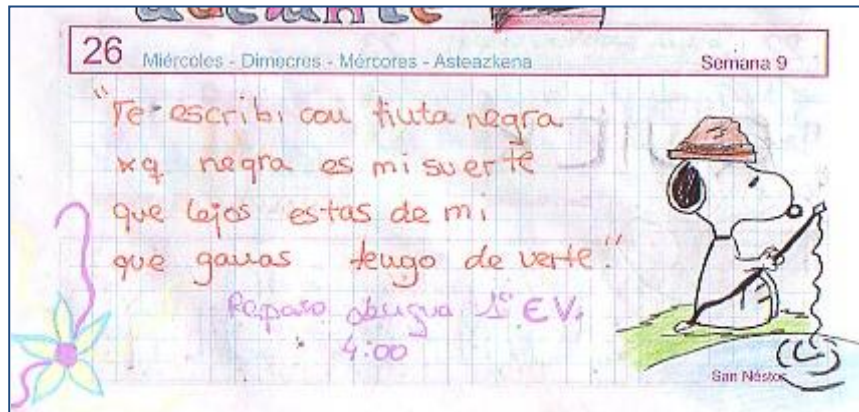 adelante
26 Miércoles - Dimecres - Mércores - Asteazkena Semana 9
"Te escribi con tinta negra
xq negra es mi suerte
que lejos estas de mi
que ganas tengo de verte."
Repaso Lengua 1ª EV.
4:00
San Néstor